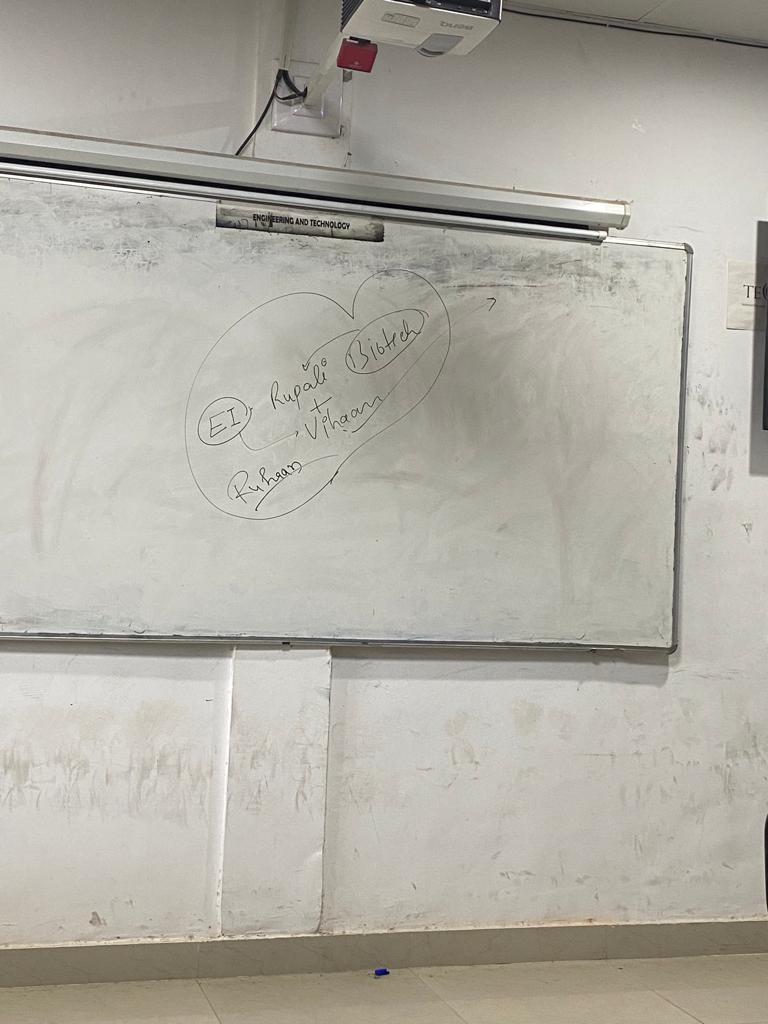 BenQ
ENGINEERING AND TECHNOLOGY
TEC
Biotech
Rupali
EI
+
Vihaan
Ruhaan